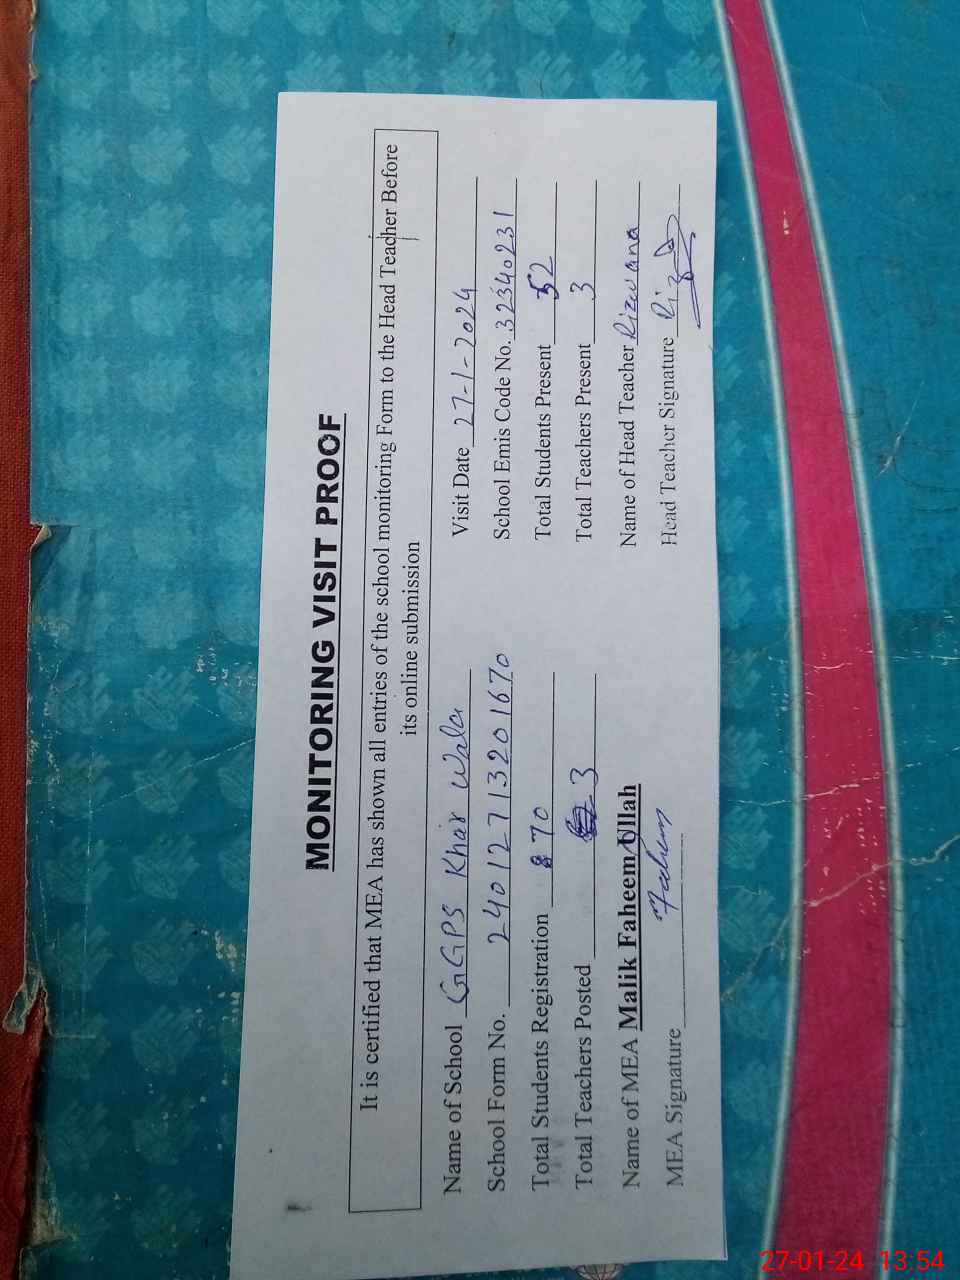 MONITORING VISIT PROOF
It is certified that MEA has shown all entries of the school monitoring Form to the Head Teacher Before
its online submission
Name of School GGPS Khar Wala Visit Date 27-1-2024
School Form No. 24012713201670 School Emis Code No. 32340231
Total Students Registration 70 Total Students Present 52
Total Teachers Posted 3 Total Teachers Present 3
Name of MEA Malik Faheem Ullah Name of Head Teacher Rizwana
MEA Signature Faheem Head Teacher Signature
27-01-24 13:54